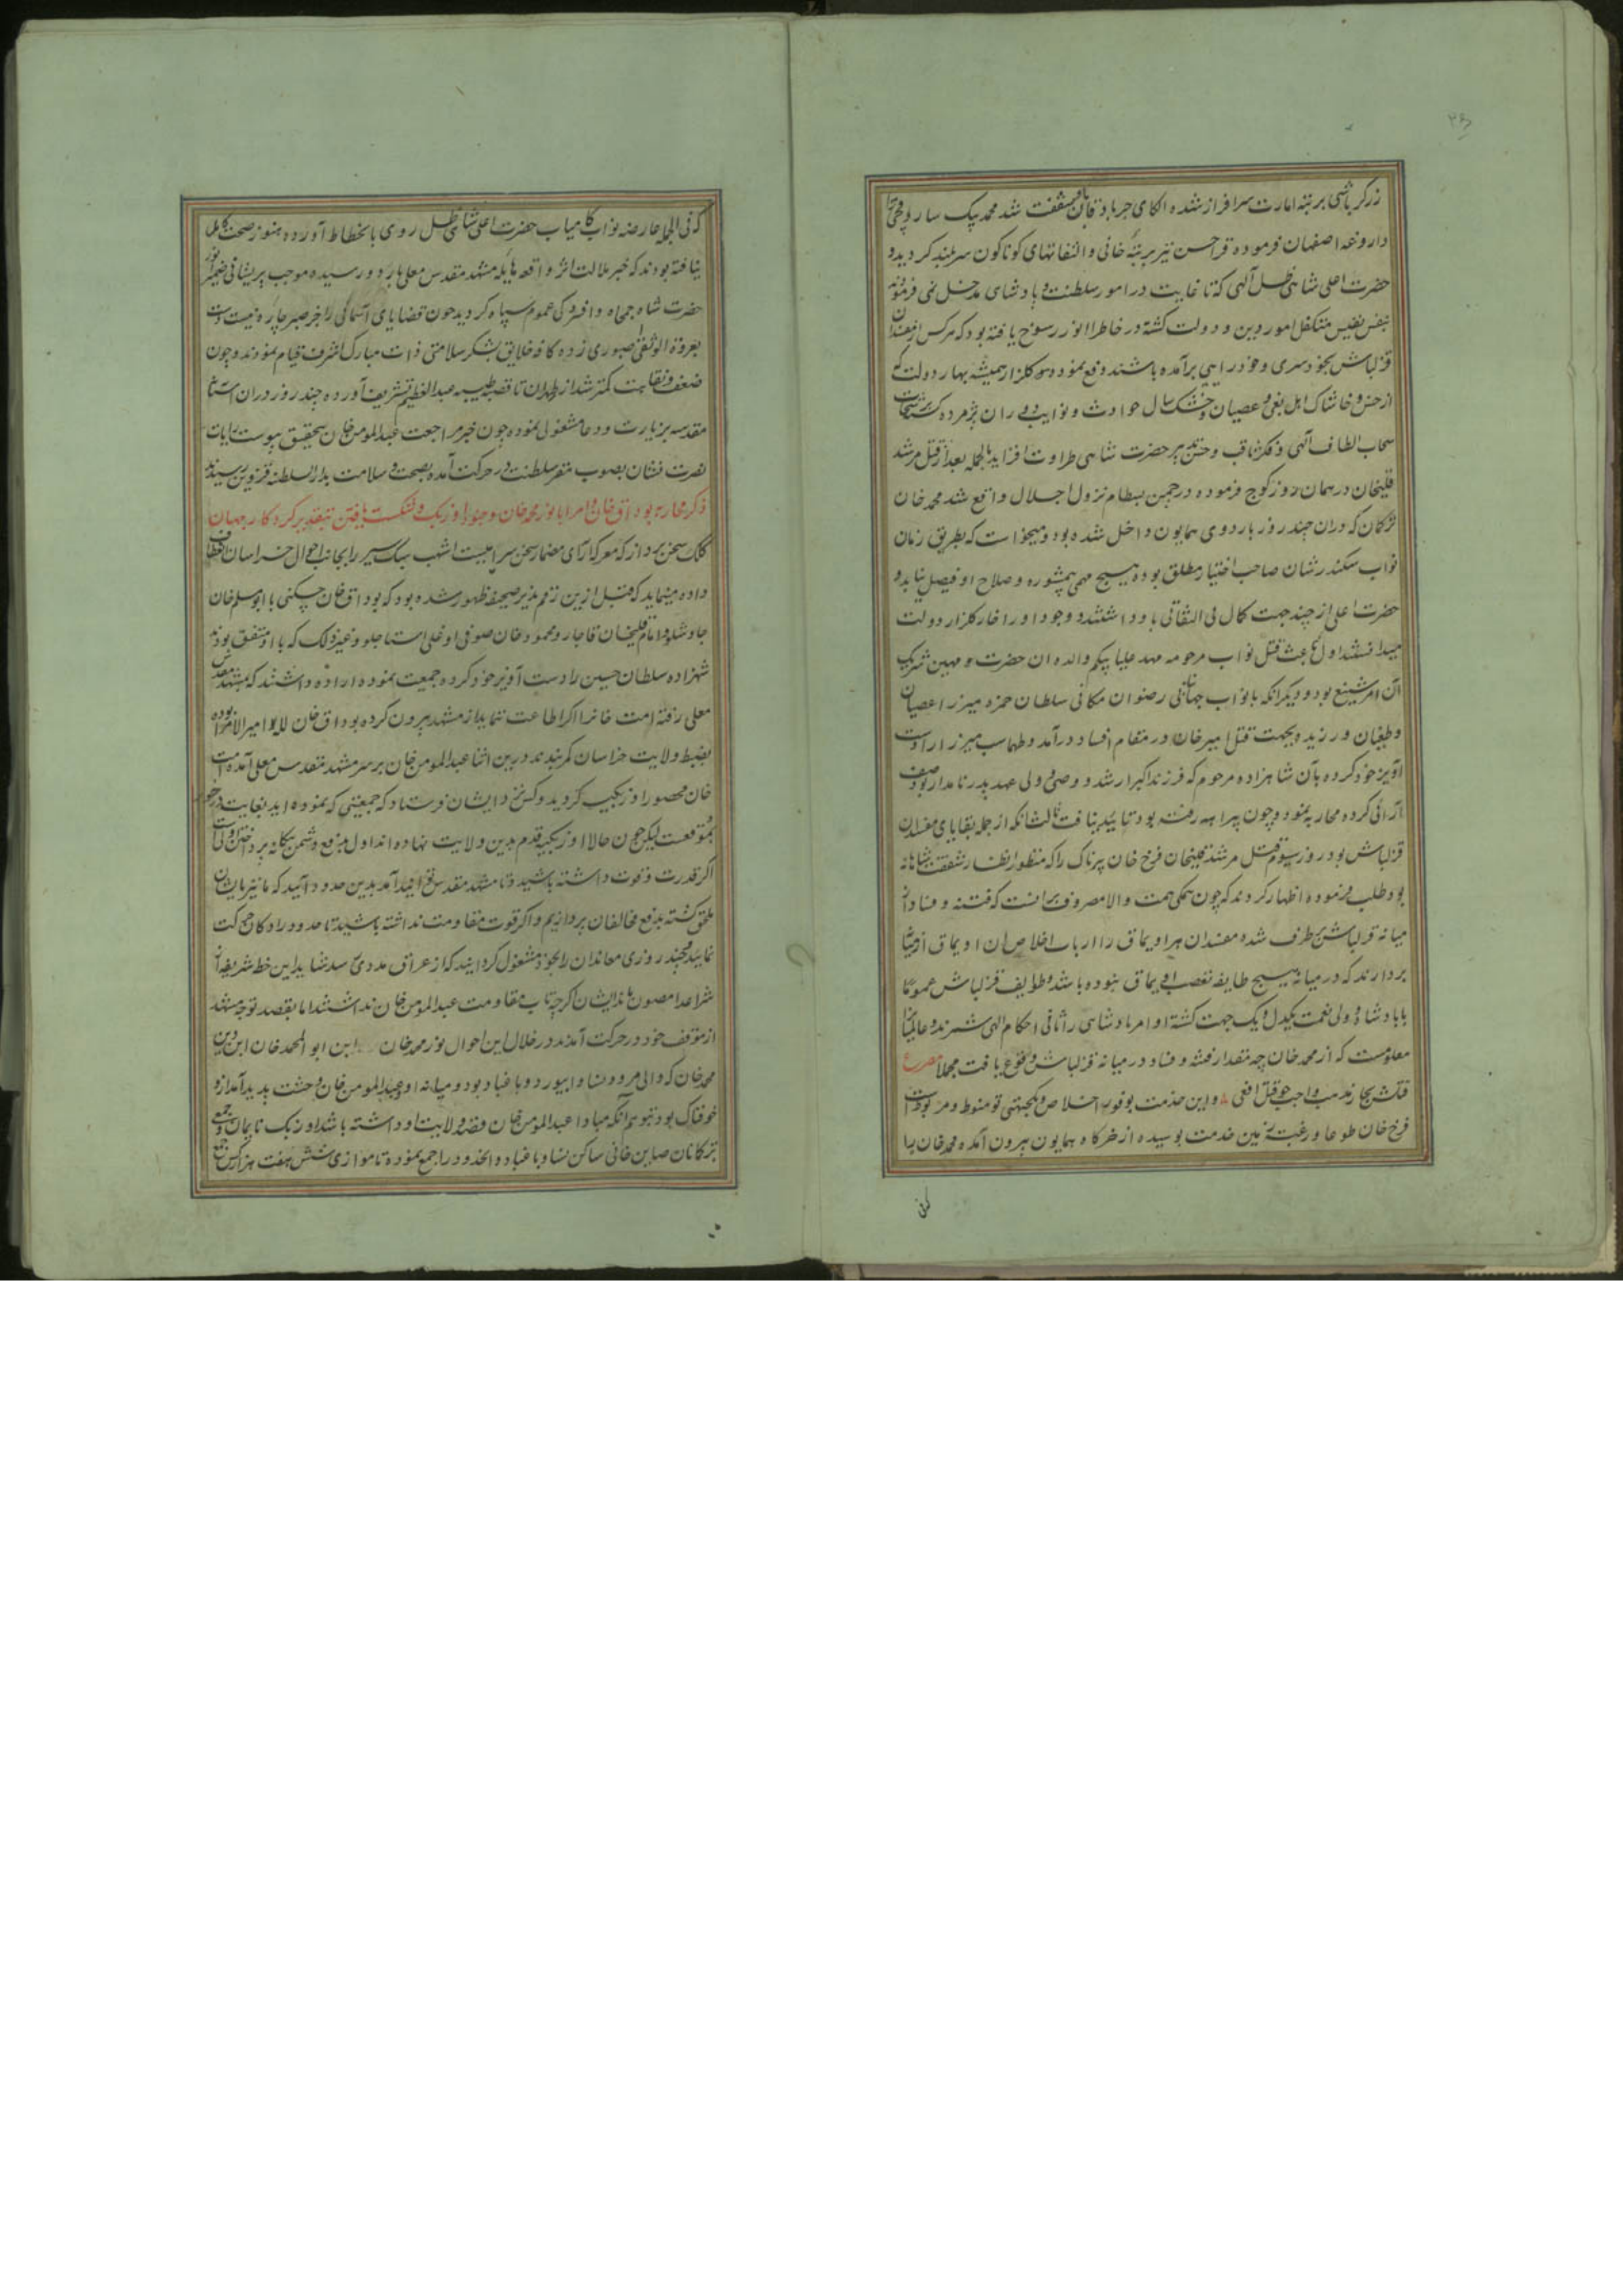 زرگرباشی برتبه امارت سرافراز شده الکای جربادقان باو شفقت شد محمد بیک ساروقچی را
داروغه اصفهان فرموده قراحسن نیز برتبه خانی و التفاتهای کوناکون سربلند کردید و
حضرت اعلی شاهی ظل آلهی که تا غایت در امور سلطنت و پادشاهی مدخل نمی فرمودند
بنفس نفیس متکفل امور دین و دولت کشته در خاطر انور رسوخ یافته بود که هرکس از مفسدان
قزلباش بخودسری و خودرایی برآمده باشند دفع نموده کلزار همیشه بهار دولت که
از خس و خاشاک اهل بغی و عصیان و خشک سال حوادث و نوایب دوران پژمرده کشته برشحات
سحاب الطاف آلهی و فکر ثاقب و حسن تدبیر حضرت شاهی طراوت افزاید بالجمله بعد از قتل مرشد
قلیخان در همان روز کوچ فرموده در چمن بسطام نزول اجلال واقع شد محمد خان
ترکمان که دران چند روز باردوی همایون داخل شده بود و میخواست که بطریق زمان
نواب سکندر شان صاحب اختیار مطلق بوده هیچ مهمی بیمشوره و صلاح او فیصل نیابد و
حضرت اعلی از چند جهت کمال بی التفاتی باو داشتند و وجود او را خار کلزار دولت
میدانستند اول باعث قتل نواب مرحومه مهد علیا بیکم والده ان حضرت و مهین شریک
آن امر شنیع بود و دیکر انکه با نواب جهانبانی رضوان مکانی سلطان حمزه میرزا عصیان
و طغیان ورزیده بجهت قتل امیر خان در مقام افساد درآمد و طهماسب میرزا را دست
آویز خود کرده بآن شاهزاده مرحوم که فرزند اکبر ارشد و وصی و ولی عهد پدر نامدار بود صف
آرائی کرده محاربه نمود و چون پیراهه رفته بود تایید نیافت ثالثا انکه از جمله بقایای مفسدان
قزلباش بود روز سیوم قتل مرشد قلیخان فرخ خان پرناک را که منظور انظار شفقت شاهانه
بود طلب فرموده اظهار کردند که چون همکی همت والا مصروف برانست که فتنه و فساد از
میانه قزلباش برطرف شده مفسدان هر اویماق را ارباب اخلاص ان اویماق از میان
بردارند که در میانه هیچ طایفه تعصب اویماق نبوده باشد و طوایف قزلباش عموما
با پادشاه و ولی نعمت یکدل و یک جهت کشته اوامر پادشاهی را ثانی احکام الهی شمرند و عالمیان را
معلومست که از محمد خان چه مقدار فتنه و فساد در میانه قزلباش وقوع یافت مجملا مصرع
قتلش بچار مذهب واجب چو قتل افعی و این خدمت بوفور اخلاص و یکجهتی تو منوط و مربوطست
فرخ خان طوعا و رغبة زمین خدمت بوسیده از خرکاه همایون بیرون آمده محمد خان را
که فی الجمله عارضه نواب کامیاب حضرت اعلی شاهی ظل روی بانحطاط آورده هنوز صحت کامل
نیافته بودند که خبر ملالت اثر واقعه هایله مشهد مقدس معلی باردو رسیده موجب پریشانی ضمیر انور
حضرت شاه جمجاه و افسردکی عموم سپاه کردید چون قضایای آسمانی را جز صبر چاره نیست دست
بعروة الوثقی صبوری زده کافه خلایق بشکر سلامتی ذات مبارک اشرف قیام نمودند و چون
ضعف و نقاهت کمتر شد از طهران تا قصبه طیبه عبدالعظیم تشریف آورده چند روز دران آستان
مقدسه بزیارت و دعا مشغولی نموده چون خبر مراجعت عبدالمومن خان بتحقیق پیوست رایات
نصرت نشان بصوب مقر سلطنت در حرکت آمده بصحت و سلامت بدار السلطنه قزوین رسیدند
ذکر محاربه بوداق خان و امرا با نور محمد خان و جنود اوزبک و شکست یافتن بتقدیر کردکار جهان
کلک سخن پرداز که معرکه آرای مضمار سخن سراییست اشهب سبک سیر را بجانب احوال خراسان انعطاف
داده مینماید که قبل ازین رقم پذیر صحیفه ظهور شده بود که بوداق خان چکنی با ابومسلم خان
چاوشلو و امام قلیخان قاجار و محمود خان صوفی اوغلی استاجلو و غیر ذلک که با او متفق بودند
شهزاده سلطان حسین را دست آویز خود کرده جمعیت نموده اراده داشتند که بمشهد مقدس
معلی رفته امت خانرا اکر اطاعت ننماید از مشهد بیرون کرده بوداق خان لله و امیر الامرا بوده
بضبط ولایت خراسان کمر بندند درین اثنا عبدالمومن خان بر سر مشهد مقدس معلی آمده امت
خان محصور اوزبکیه کردید و کس نزد ایشان فرستاد که جمعیتی که نموده اید بغایت در خور
بموقعست لیکن چون حالا اوزبکیه قدم بدین ولایت نهاده اند اول بدفع دشمن بیکانه پرداختن اولی است
اکر قدرت و قوت داشته باشید و تا مشهد مقدس توانید آمد بدین حدود آئید که ما نیز بایشان
ملحق کشته بدفع مخالفان پردازیم و اکر قوت مقاومت نداشته باشید تا حدود رادکان حرکت
نمایید و چند روزی معاندان را بخود مشغول کردانید که از عراق مددی رسد شاید این خطه شریفه از
شر اعدا مصون ماند ایشان اکرچه تاب مقاومت عبدالمومن خان نداشتند اما بقصد توجه مشهد
از موقف خود در حرکت آمدند در خلال این احوال نور محمد خان ابن ابو المحمد خان ابن دین
محمد خان که والی مرو و نسا و ابیورد و باغباد بود و میانه او و عبدالمومن خان وحشت پدید آمده ازو
خوفناک بود بتوهم آنکه مبادا عبدالمومن خان قصد ولایت او داشته باشد اوزبک نایمان و جمیع
ترکمانان صاین خانی ساکن نسا و باغباد و انحدود را جمع نموده تا موازی شش هفت هزار کس جمع